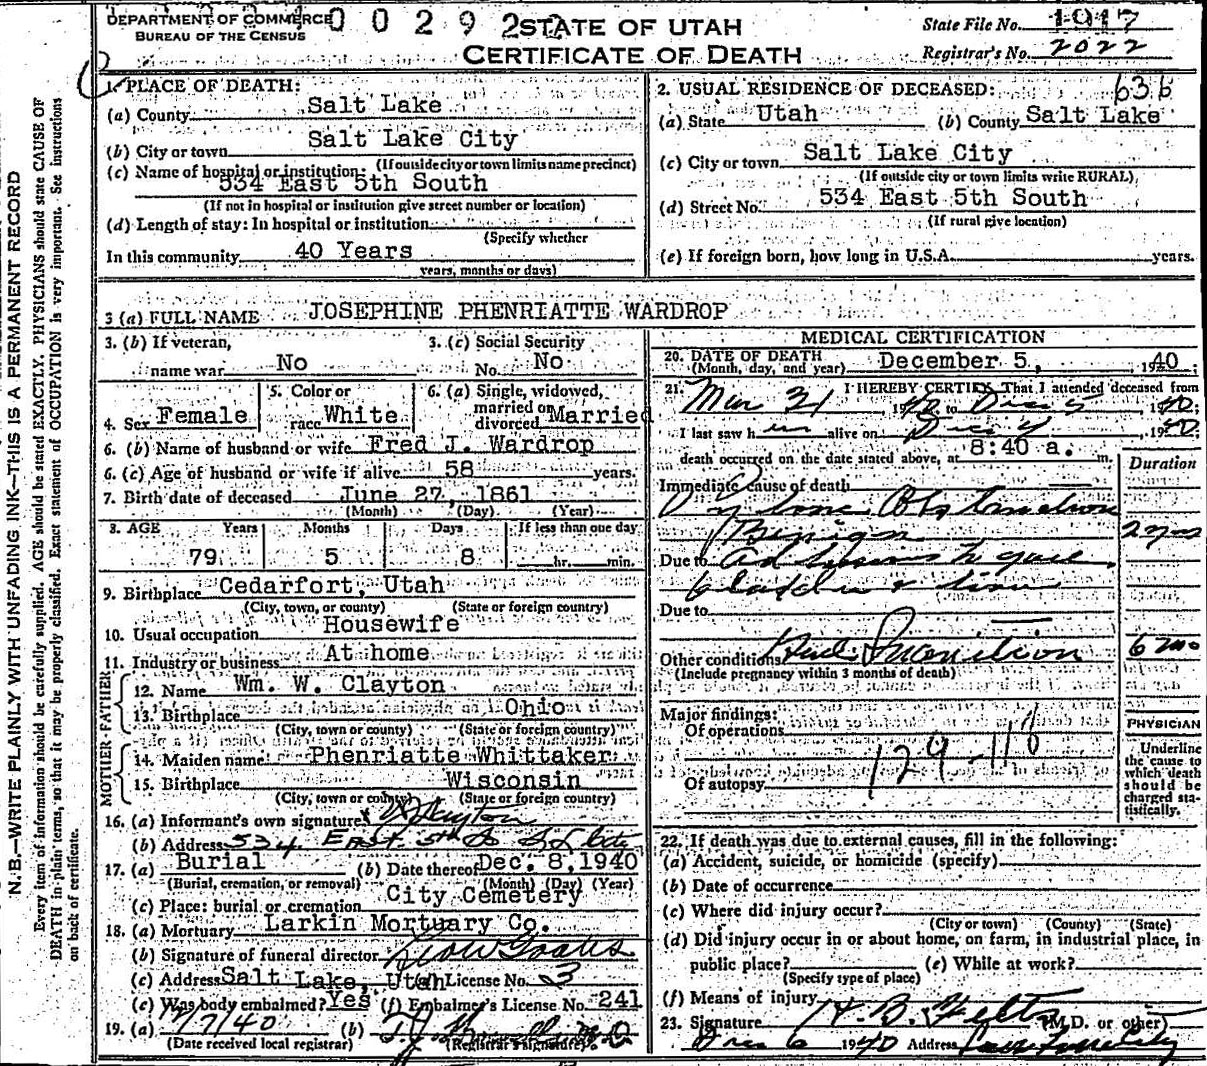 DEPARTMENT OF COMMERCE
BUREAU OF THE CENSUS
0 0 2 9 2
STATE OF UTAH
CERTIFICATE OF DEATH
State File No. 1917
Registrar's No. 2022
N.B.—WRITE PLAINLY WITH UNFADING INK—THIS IS A PERMANENT RECORD
Every item of information should be carefully supplied. AGE should be stated EXACTLY. PHYSICIANS should state CAUSE OF
DEATH in plain terms, so that it may be properly classified. Exact statement of OCCUPATION is very important. See instructions
on back of certificate.
1. PLACE OF DEATH:
(a) County Salt Lake
(b) City or town Salt Lake City
(If outside city or town limits name precinct)
(c) Name of hospital or institution:
534 East 5th South
(If not in hospital or institution give street number or location)
(d) Length of stay: In hospital or institution
(Specify whether
In this community 40 Years
years, months or days)
2. USUAL RESIDENCE OF DECEASED: 636
(a) State Utah (b) County Salt Lake
(c) City or town Salt Lake City
(If outside city or town limits write RURAL)
(d) Street No. 534 East 5th South
(If rural give location)
(e) If foreign born, how long in U.S.A. years.
3 (a) FULL NAME JOSEPHINE PHENRIATTE WARDROP
3. (b) If veteran,
name war No
3. (c) Social Security
No. No
4. Sex Female
5. Color or
race White
6. (a) Single, widowed,
married or
divorced Married
6. (b) Name of husband or wife Fred J. Wardrop
6. (c) Age of husband or wife if alive 58 years.
7. Birth date of deceased June 27, 1861
(Month) (Day) (Year)
8. AGE Years Months Days If less than one day
79 5 8 hr. min.
9. Birthplace Cedarfort, Utah
(City, town, or county) (State or foreign country)
10. Usual occupation Housewife
11. Industry or business At home
FATHER
12. Name Wm. W. Clayton
13. Birthplace Ohio
(City, town or county) (State or foreign country)
MOTHER
14. Maiden name Phenriatte Whittaker
15. Birthplace Wisconsin
(City, town or county) (State or foreign country)
16. (a) Informant's own signature Clayton
(b) Address 534 East 5th So
17. (a) Burial (b) Date thereof Dec. 8, 1940
(Burial, cremation, or removal) (Month) (Day) (Year)
(c) Place: burial or cremation City Cemetery
18. (a) Mortuary Larkin Mortuary Co.
(b) Signature of funeral director
(c) Address Salt Lake, Utah License No. 3
(e) Was body embalmed? Yes (f) Embalmer's License No. 241
19. (a) (b)
(Date received local registrar) (Registrar's signature)
MEDICAL CERTIFICATION
20. DATE OF DEATH
(Month, day, and year) December 5, 1940
21. I HEREBY CERTIFY, That I attended deceased from
Mar 31 1940 to Dec 5 1940;
I last saw her alive on Dec 4, 1940;
death occurred on the date stated above, at 8:40 a. m.
Duration
Immediate cause of death
Pyloric Obstruction
Benign
Due to Adhesions to gall
bladder & liver
Due to
Other conditions 6 mo
(Include pregnancy within 3 months of death)
Major findings:
Of operations
129-118
Of autopsy
PHYSICIAN
Underline
the cause to
which death
should be
charged sta-
tistically.
22. If death was due to external causes, fill in the following:
(a) Accident, suicide, or homicide (specify)
(b) Date of occurrence
(c) Where did injury occur?
(City or town) (County) (State)
(d) Did injury occur in or about home, on farm, in industrial place, in
public place? (e) While at work?
(Specify type of place)
(f) Means of injury
23. Signature (M.D. or other)
Dec 6 1940 Address